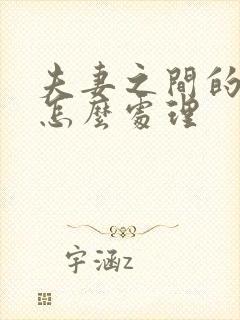 夫妻之間的
怎麼處理
宇涵z